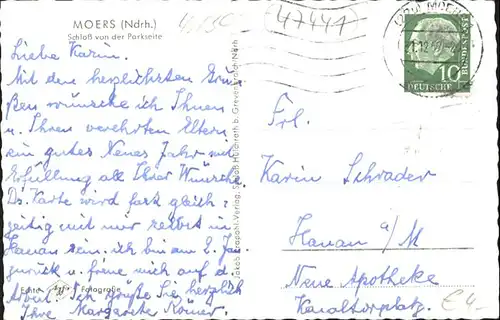 MOERS (Ndrh.)
Schloß von der Parkseite
Liebe Karin.
Mit den herzlichsten Grü-
ßen wünsche ich Ihnen
u. Ihren verehrten Eltern
ein gutes Neues Jahr mit
Erfüllung all Ihrer Wünsche.
Ds. Karte wird fast gleich-
zeitig mit mir selbst in
Hanau sein. ich bin am 8. Jan.
zurück u. freue mich auf d.
Arbeit. Ich grüße Sie herzlich
Ihre Margarete Römer.
Echte Fotografie
47441
MOERS
10
DEUTSCHE
BUNDESPOST
Frl.
Karin Schrader
Hanau a/M
Neue Apotheke
Kanaltorplatz.
€ 4-